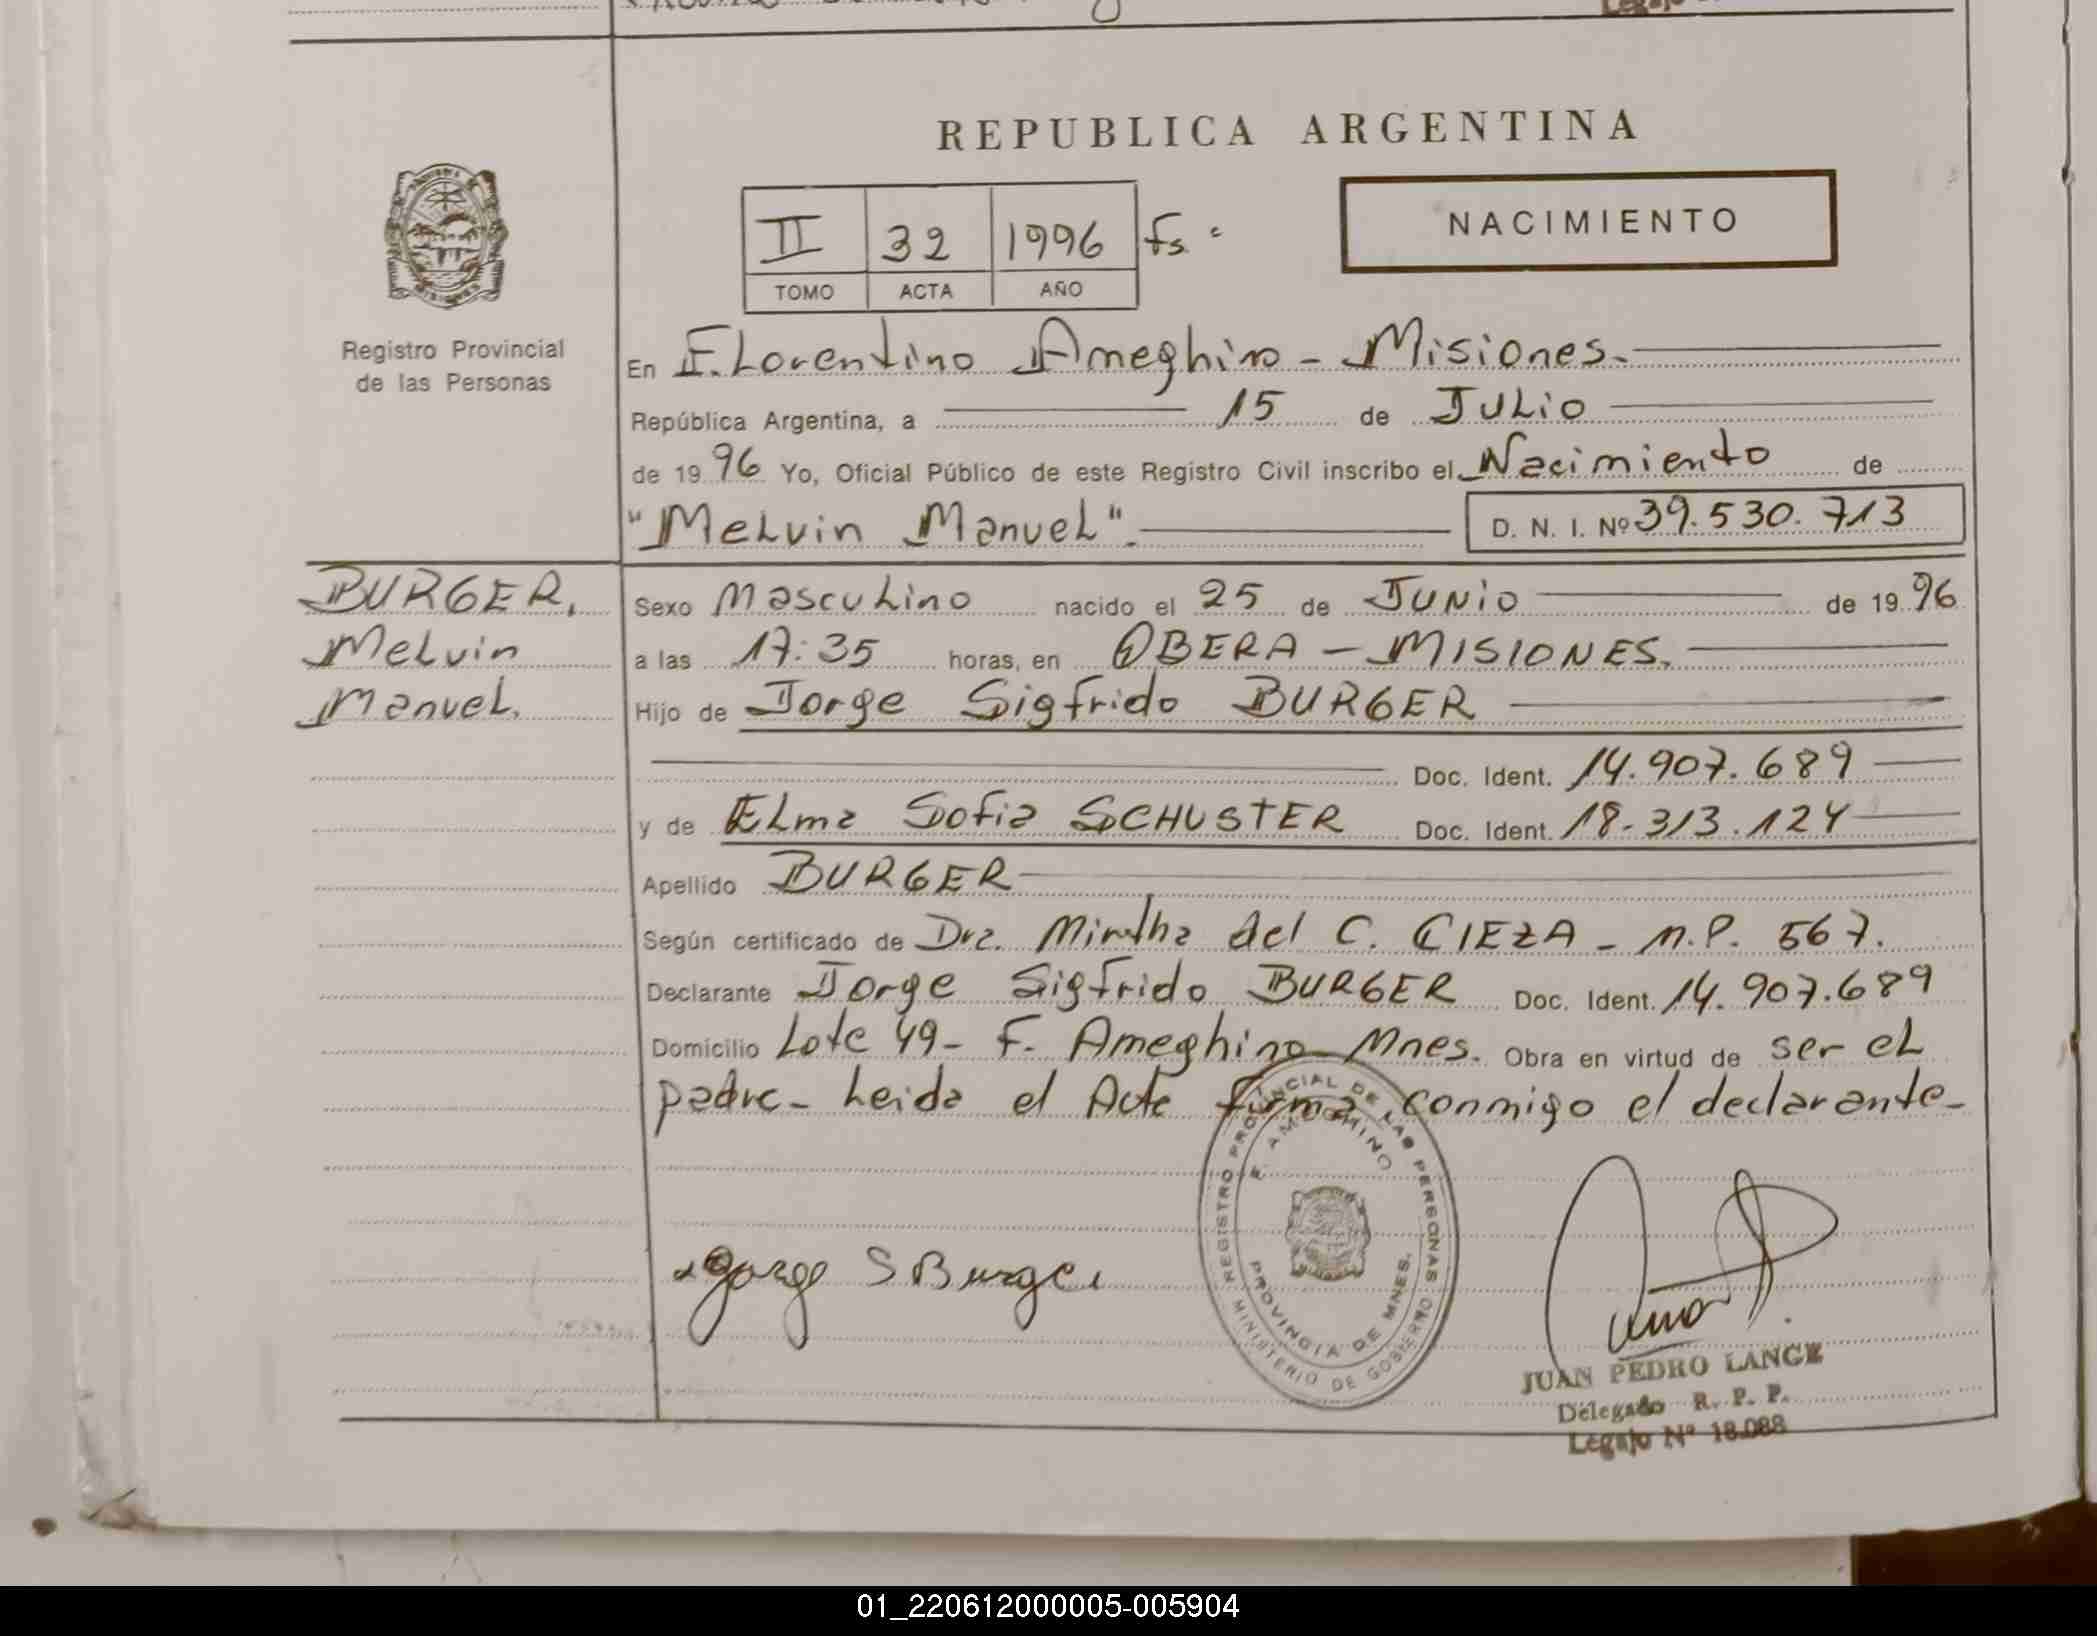 REPUBLICA ARGENTINA
NACIMIENTO
II 32 1996 Fs.
TOMO ACTA AÑO
Registro Provincial
de las Personas
En F. Lorentino Ameghino - Misiones.
República Argentina, a 15 de JULio
de 1996 Yo, Oficial Público de este Registro Civil inscribo el Nacimiento de
"Melvin Manuel". D. N. I. Nº 39.530.713
BURGER,
Melvin
Manuel.
Sexo Masculino nacido el 25 de JUNio de 1996
a las 17:35 horas, en OBERA - MISIONES.
Hijo de Jorge Sigfrido BURGER
Doc. Ident. 14.907.689
y de Elma Sofia SCHUSTER Doc. Ident. 18.313.124
Apellido BURGER
Según certificado de Dra. Mirtha del C. CIEZA - M.P. 567.
Declarante Jorge Sigfrido BURGER Doc. Ident. 14.907.689
Domicilio Lote 49- F. Ameghino Mnes. Obra en virtud de ser el
padre- Leida el Acta firma conmigo el declarante-
REGISTRO PROVINCIAL DE LAS PERSONAS
F. AMEGHINO
PROVINCIA DE MNES.
MINISTERIO DE GOBIERNO
Jorge S Burger
JUAN PEDRO LANGE
Delegado R. P. P.
Legajo Nº 18.088
01_220612000005-005904